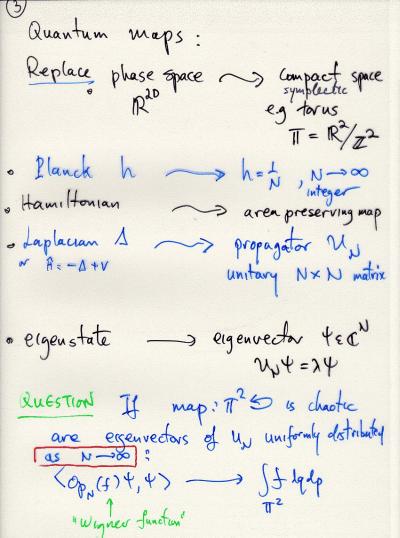 3
Quantum maps:
Replace phase space ⟿ compact space
symplectic
ℝ^{2D} e.g torus
𝕋 = ℝ²/ℤ²
• Planck h ⟶ h = 1/N , N → ∞
integer
• Hamiltonian ⟿ area preserving map
• Laplacian Δ ⟿ propagator U_N
or Ĥ = -Δ + V unitary N×N matrix
• eigenstate ⟶ eigenvector ψ ∈ ℂ^N
U_N ψ = λψ
QUESTION If map: 𝕋² ↩ is chaotic
are eigenvectors of U_N uniformly distributed
as N → ∞ :
⟨Op_N(f)ψ, ψ⟩ ⟶ ∫ f dq dp
𝕋²
"Wigner function"